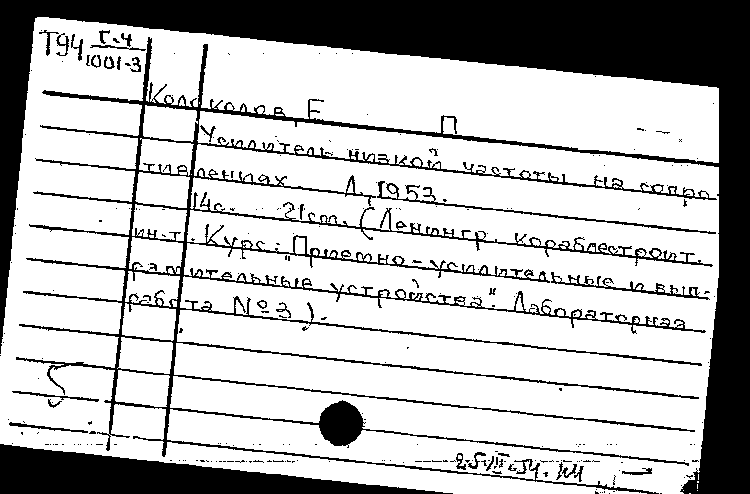 Т94 Г-4
1001-3
Колоколов, Е П
Усилитель низкой частоты на сопро-
тивлениях. Л, 1953.
14с. 21cm. (Ленингр. кораблестроит.
ин-т. Курс: "Приемно-усилительные и вып-
рямительные устройства". Лабораторная
работа № 3).
5
25.VIII-54.